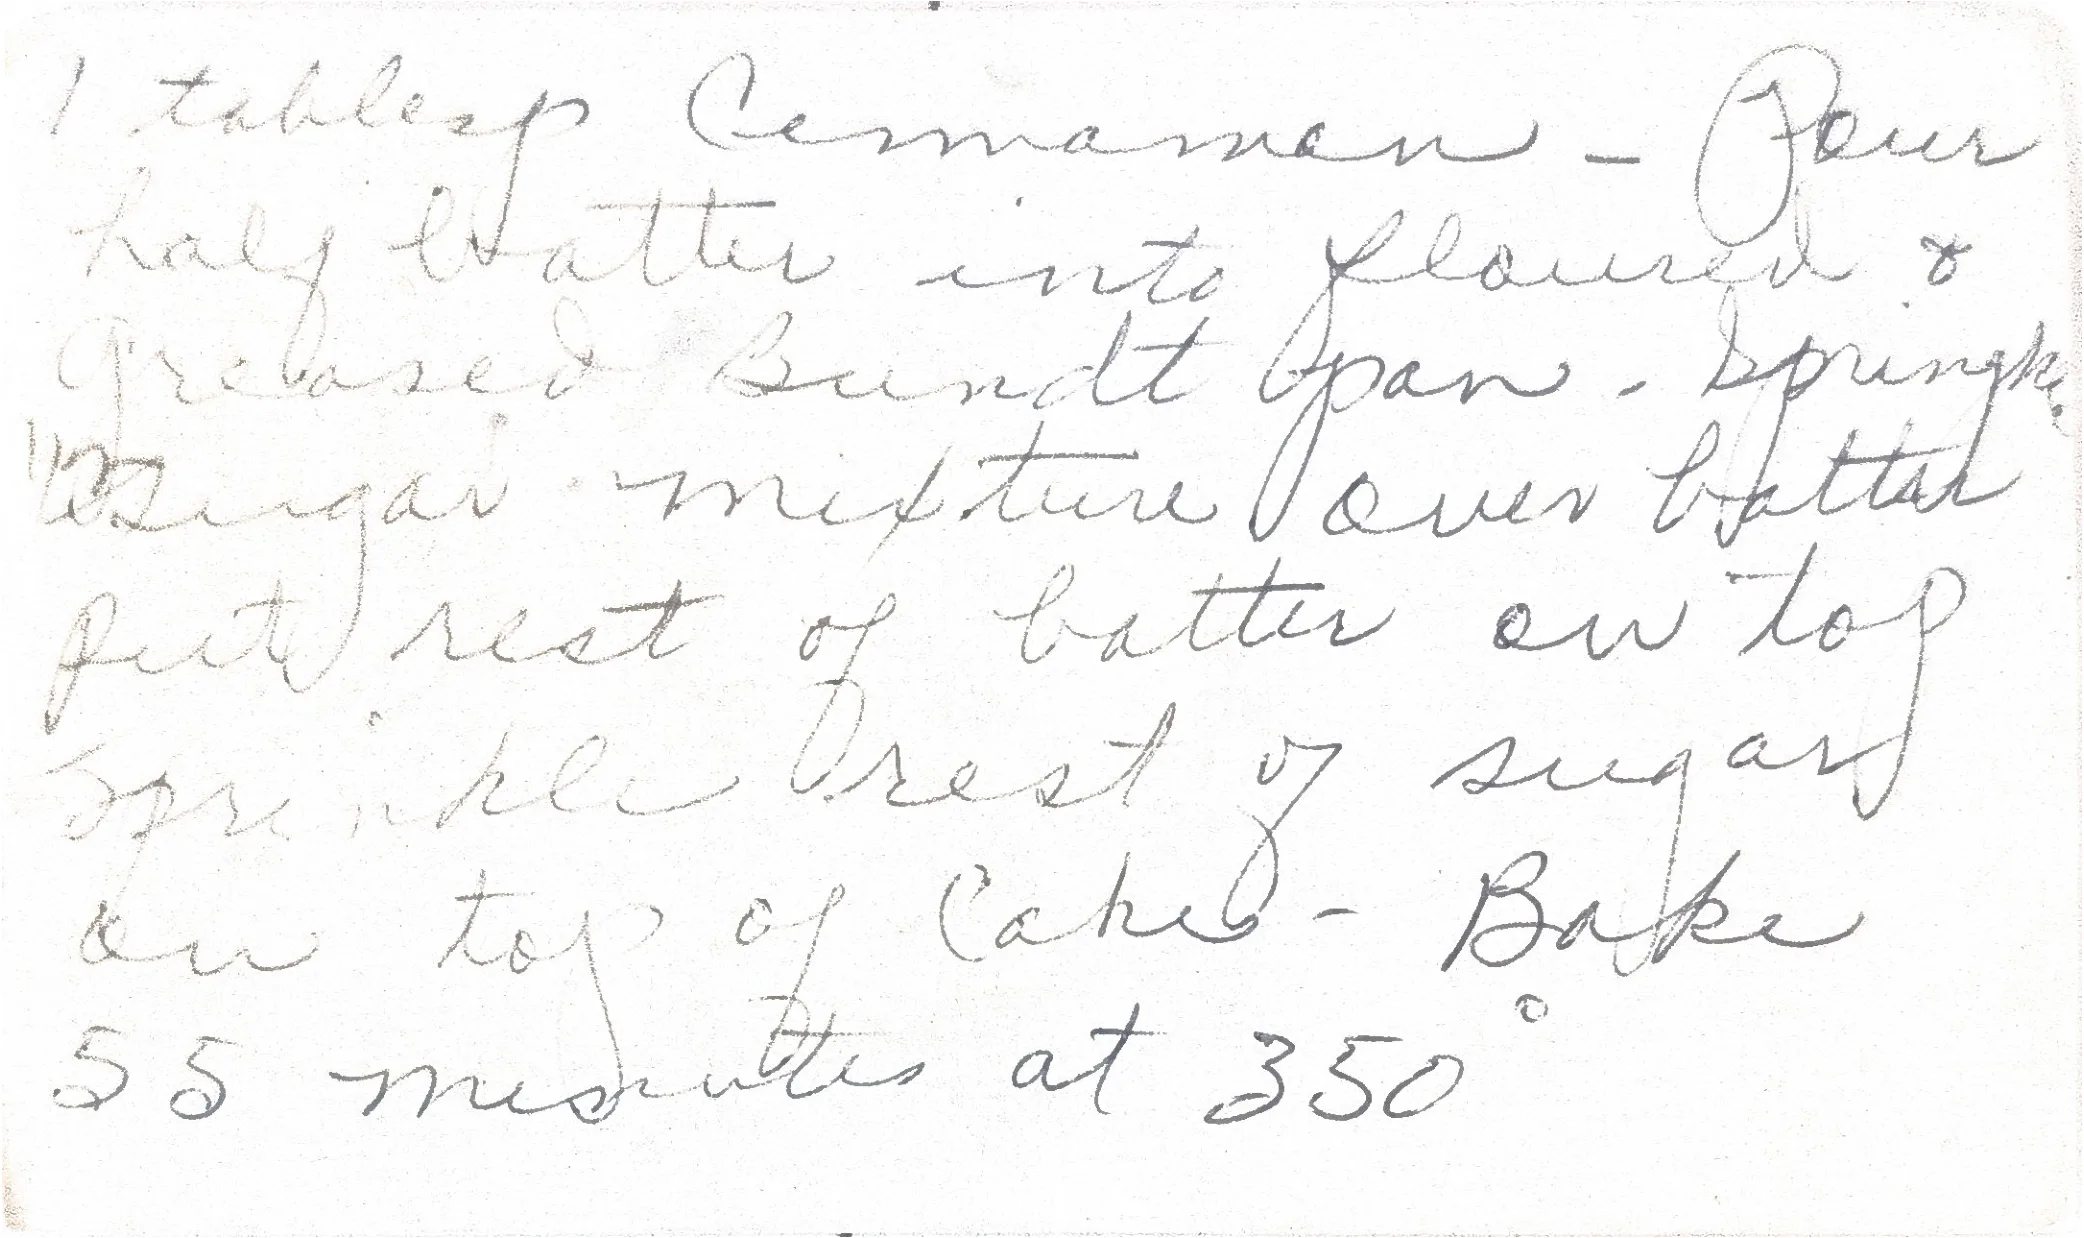 1 tablesp Cinnamon - Pour
half batter into floured &
greased Bundt pan. Springkle
1/2 sugar mixture over batter
put rest of batter on top
Sprinkle rest of sugar
on top of Cake - Bake
55 minutes at 350°